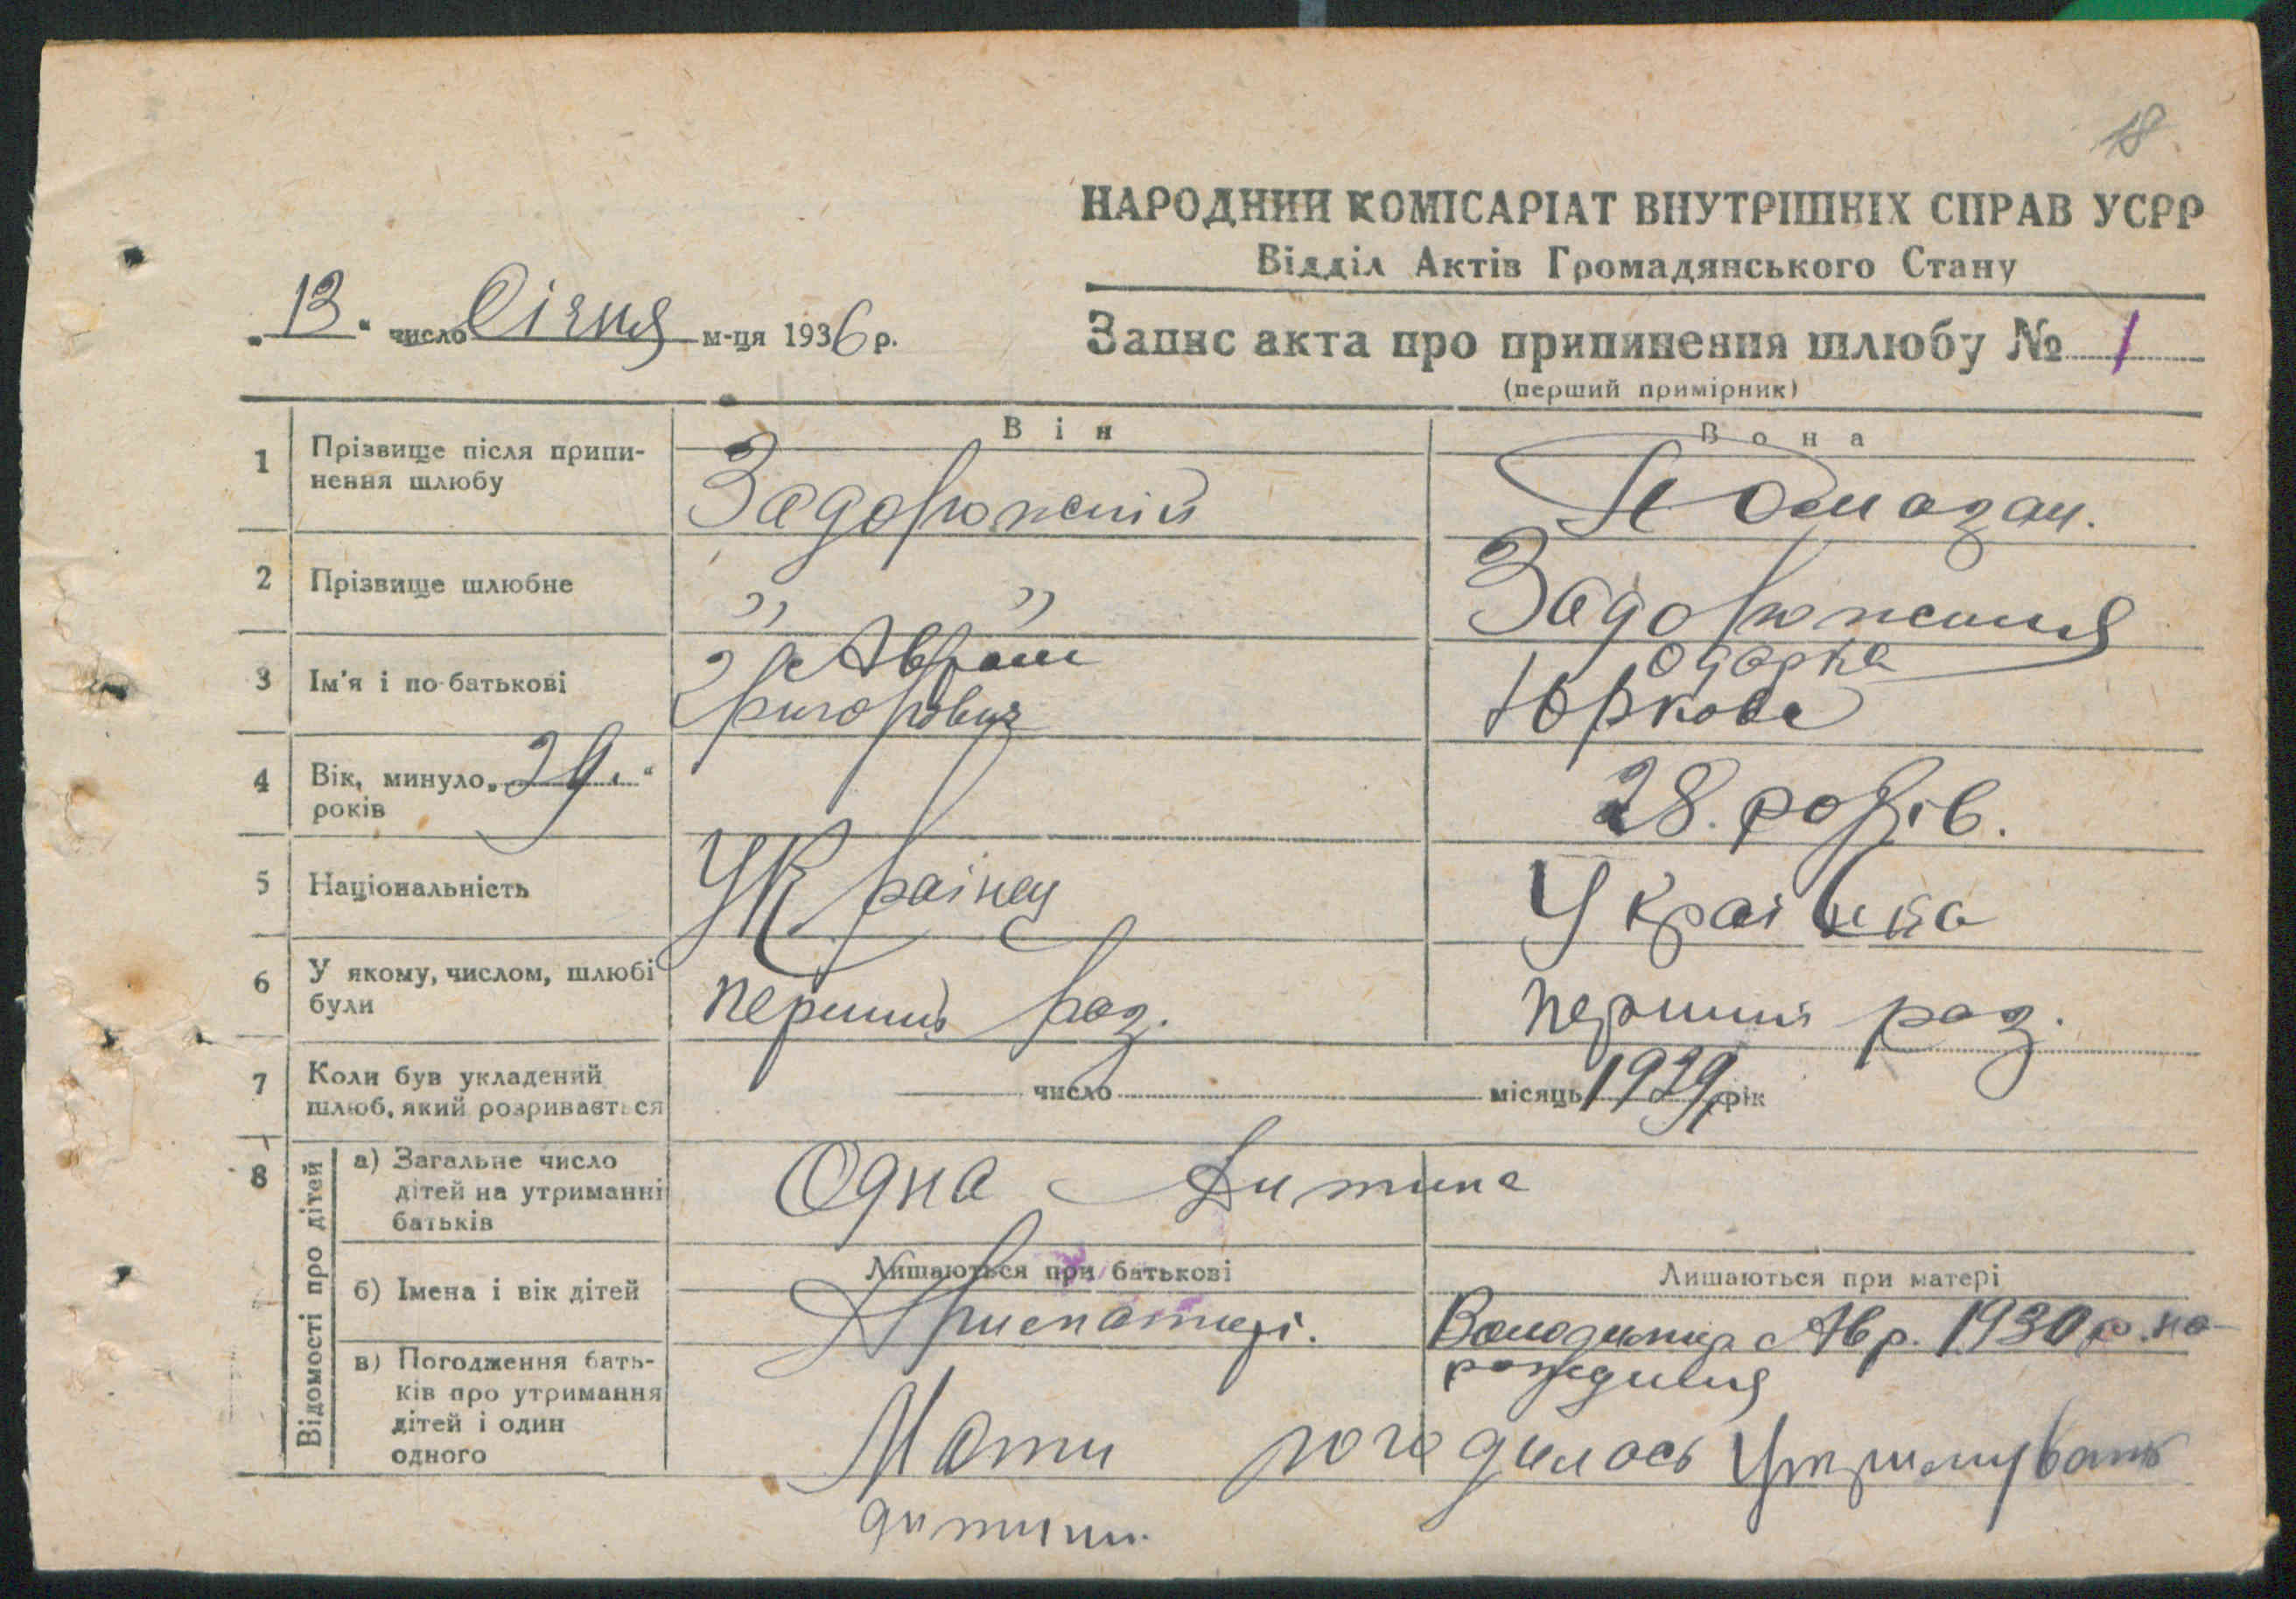 18
НАРОДНИЙ КОМІСАРІАТ ВНУТРІШНІХ СПРАВ УСРР
Відділ Актів Громадянського Стану
„13“ число Січня м-ця 1936 р.
Запис акта про припинення шлюбу № 1
(перший примірник)
Він
Вона
1 Прізвище після припи-
нення шлюбу
Задорожній
Помазан.
2 Прізвище шлюбне
„ „
Задорожния
3 Ім'я і по-батькові
Аврам
Григорович
Одарка
Юркова
4 Вік, минуло „29“
років
28. років.
5 Національність
Українец
Українка
6 У якому, числом, шлюбі
були
перший раз.
перший раз.
7 Коли був укладений
шлюб, який розривається
число місяць 1929 рік
8 Відомості про дітей
а) Загальне число
дітей на утриманні
батьків
Одна Дитина
б) Імена і вік дітей
Лишаються при батькові
Лишаються при матері
Володимир Авр. 1930 р. на-
рождения
в) Погодження бать-
ків про утримання
дітей і один
одного
Мати погодилась Утримувать
дитину.